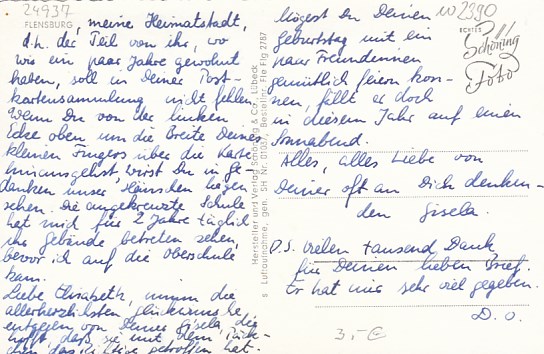 24937
FLENSBURG
, meine Heimatstadt,
d.h. der Teil von ihr, wo
wir ein paar Jahre gewohnt
haben, soll in Deiner Post-
kartensammlung nicht fehlen.
Wenn Du von der linken
Ecke oben um die Breite Deines
kleinen Fingers über die Karte
hinausgehst, wirst Du in Ge-
danken unser Häuschen liegen
sehen. Die angekreuzte Schule
hat mich für 2 Jahre täglich
ihr Gebäude betreten sehen,
bevor ich auf die Oberschule
kam.
Liebe Elisabeth, nimm die
allerherzlichsten Glückwünsche
entgegen von Deiner Gisela, die
hofft, daß sie mit dem Päck-
chen das Richtige getroffen hat.
Hersteller und Verlag Schöning & Co., Lübeck
s Luftaufnahme, gen. SH Nr. 01037, Bestellnr. Fle Flg 2787
mögest Du Deinen
Geburtstag mit ein
paar Freundinnen
gemütlich feiern kön-
nen, fällt er doch
in diesem Jahr auf einen
Sonnabend.
Alles, alles Liebe von
Deiner oft an Dich denken-
den Gisela.
P.S. Vielen tausend Dank
für Deinen lieben Brief.
Er hat mir sehr viel gegeben.
D. O.
W2390
ECHTES
Schöning
Foto
3,-€